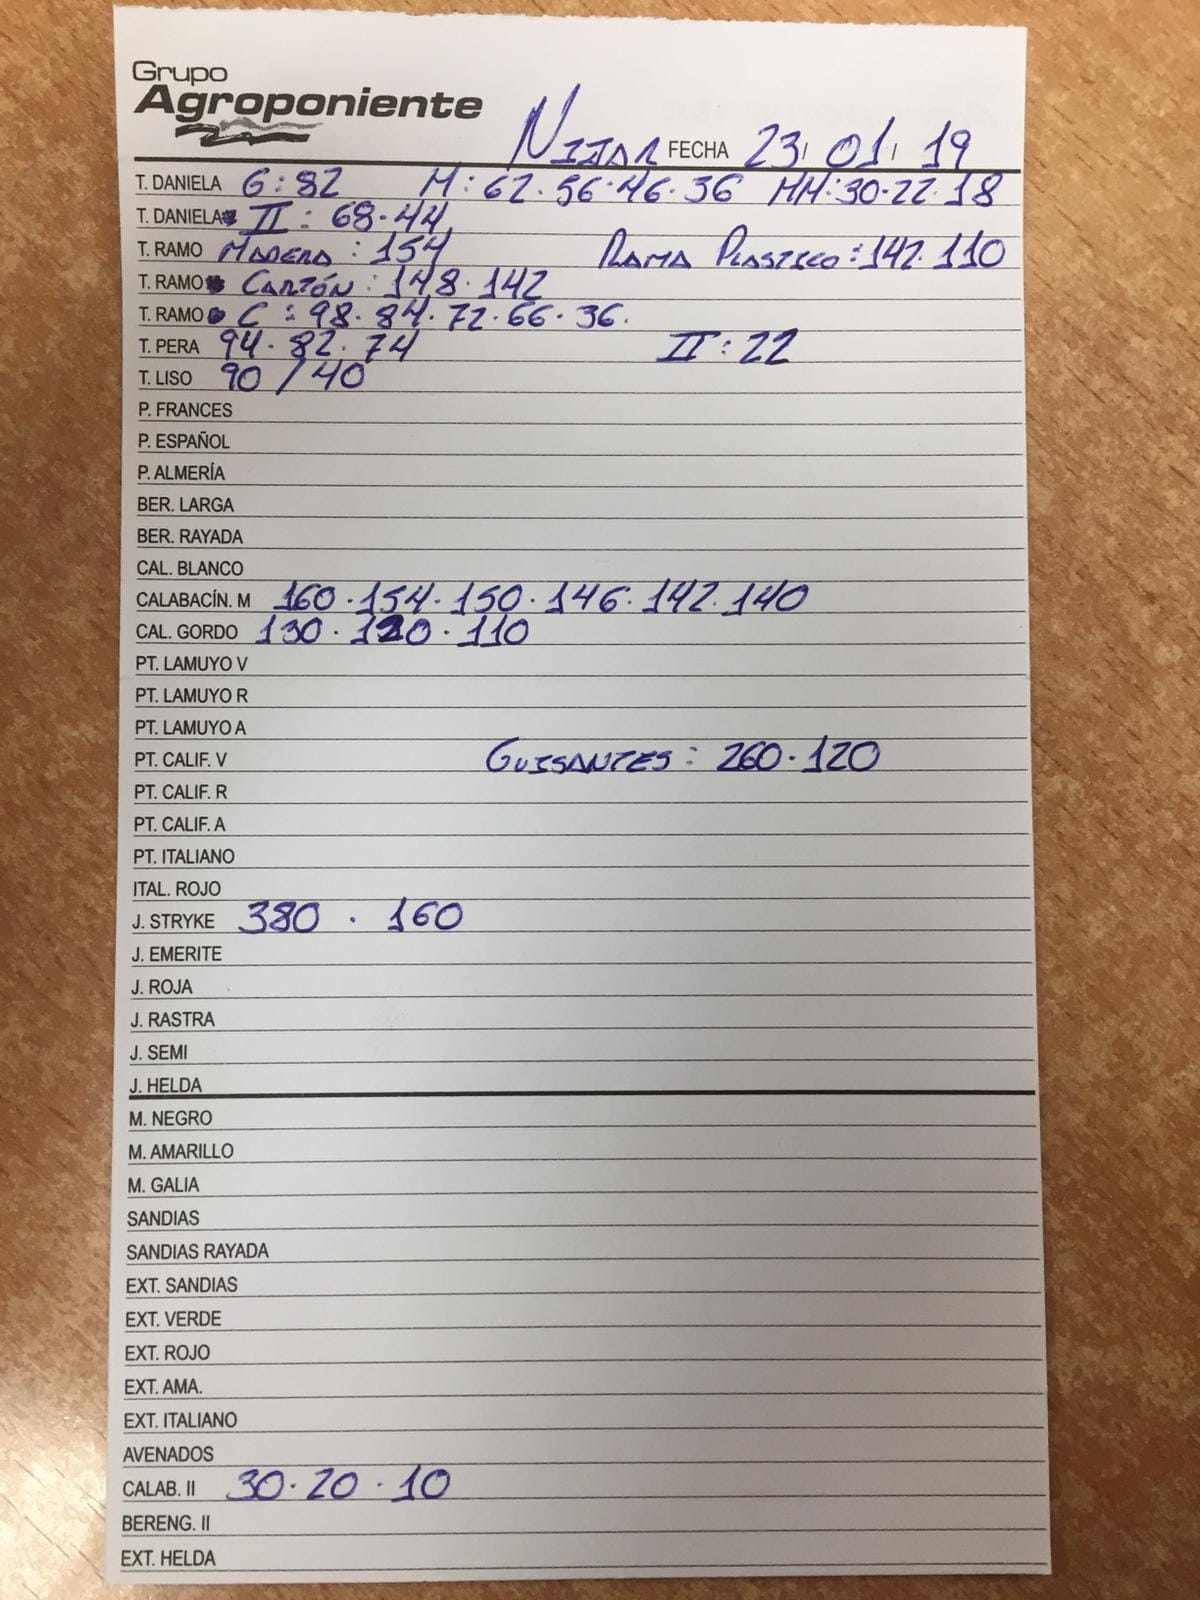 Grupo
Agroponiente
NIJAR FECHA 23/ 01/ 19
T. DANIELA G: 82 M: 62·56·46·36 MM: 30·22·18
T. DANIELA II: 68·44
T. RAMO MADERA: 154 RAMA PLASTICO: 142·110
T. RAMO CARTÓN: 148·142
T. RAMO C: 98·84·72·66·36.
T. PERA 94·82·74 II: 22
T. LISO 90 / 40
P. FRANCES
P. ESPAÑOL
P. ALMERÍA
BER. LARGA
BER. RAYADA
CAL. BLANCO
CALABACÍN. M 160·154·150·146·142·140
CAL. GORDO 130·120·110
PT. LAMUYO V
PT. LAMUYO R
PT. LAMUYO A
PT. CALIF. V GUISANTES: 260·120
PT. CALIF. R
PT. CALIF. A
PT. ITALIANO
ITAL. ROJO
J. STRYKE 380 · 160
J. EMERITE
J. ROJA
J. RASTRA
J. SEMI
J. HELDA
M. NEGRO
M. AMARILLO
M. GALIA
SANDIAS
SANDIAS RAYADA
EXT. SANDIAS
EXT. VERDE
EXT. ROJO
EXT. AMA.
EXT. ITALIANO
AVENADOS
CALAB. II 30·20·10
BERENG. II
EXT. HELDA